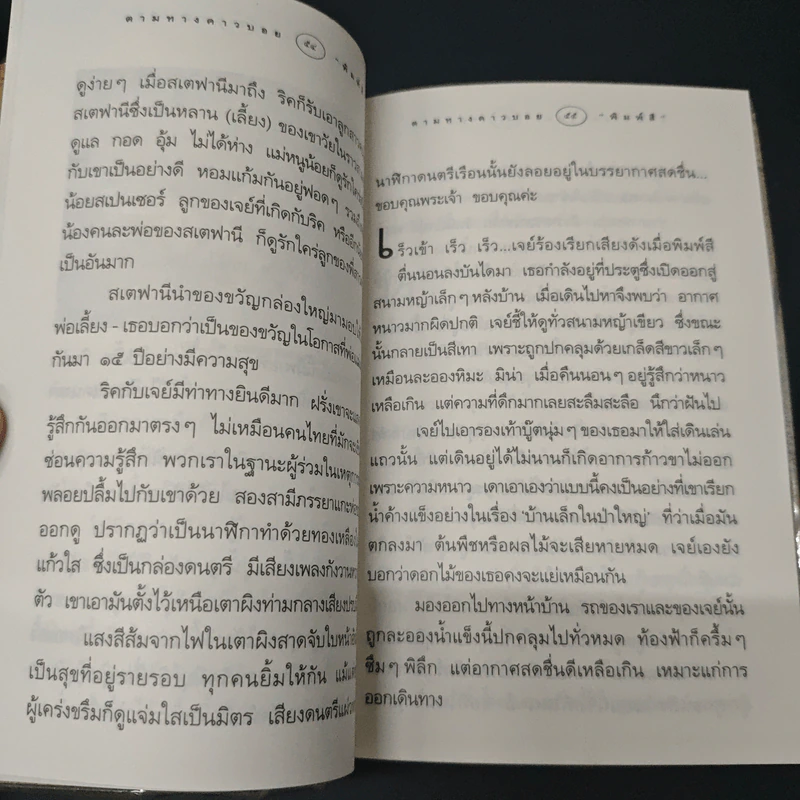 ตามทางคาวบอย ๕๔
ดูง่ายๆ เมื่อสเตฟานีมาถึง ริคก็รับเอาลูก
สเตฟานีซึ่งเป็นหลาน (เลี้ยง) ของเขาวัย
ดูแล กอด อุ้ม ไม่ได้ห่าง แม่หนูน้อยก็ดูรัก
กับเขาเป็นอย่างดี หอมแก้มกันอยู่ฟอดๆ
น้อยสเปนเซอร์ ลูกของเจย์ที่เกิดกับริค หรือ
น้องคนละพ่อของสเตฟานี ก็ดูรักใคร่ลูกของพี่
เป็นอันมาก
สเตฟานีนำของขวัญกล่องใหญ่มามอบ
พ่อเลี้ยง - เธอบอกว่าเป็นของขวัญในโอกาสที่พ่อ
กันมา ๑๕ ปีอย่างมีความสุข
ริคกับเจย์มีท่าทางยินดีมาก ฝรั่งเขาจะ
รู้สึกกันออกมาตรงๆ ไม่เหมือนคนไทยที่มักจะ
ซ่อนความรู้สึก พวกเราในฐานะผู้ร่วมในเหตุการ
พลอยปลื้มไปกับเขาด้วย สองสามีภรรยาแกะ
ออกดู ปรากฏว่าเป็นนาฬิกาทำด้วยทองเหลือง
แก้วใส ซึ่งเป็นกล่องดนตรี มีเสียงเพลงกังวาน
ตัว เขาเอามันตั้งไว้เหนือเตาผิงท่ามกลางเสียง
แสงสีส้มจากไฟในเตาผิงสาดจับใบหน้า
เป็นสุขที่อยู่รายรอบ ทุกคนยิ้มให้กัน แม้
ผู้เคร่งขรึมก็ดูแจ่มใสเป็นมิตร เสียงดนตรี
ตามทางคาวบอย ๕๕ "พิมพ์สี"
นาฬิกาดนตรีเรือนนั้นยังลอยอยู่ในบรรยากาศสดชื่น...
ขอบคุณพระเจ้า ขอบคุณค่ะ
เร็วเข้า เร็ว เร็ว...เจย์ร้องเรียกเสียงดังเมื่อพิมพ์สี
ตื่นนอนลงบันไดมา เธอกำลังอยู่ที่ประตูซึ่งเปิดออกสู่
สนามหญ้าเล็กๆ หลังบ้าน เมื่อเดินไปหาจึงพบว่า อากาศ
หนาวมากผิดปกติ เจย์ชี้ให้ดูทั่วสนามหญ้าเขียว ซึ่งขณะ
นั้นกลายเป็นสีเทา เพราะถูกปกคลุมด้วยเกล็ดสีขาวเล็กๆ
เหมือนละอองหิมะ มิน่า เมื่อคืนนอนๆ อยู่รู้สึกว่าหนาว
เหลือเกิน แต่ความที่ดึกมากเลยสะลึมสะลือ นึกว่าฝันไป
เจย์ไปเอารองเท้าบู๊ตนุ่มๆ ของเธอมาให้ใส่เดินเล่น
แถวนั้น แต่เดินอยู่ได้ไม่นานก็เกิดอาการก้าวขาไม่ออก
เพราะความหนาว เดาเอาเองว่าแบบนี้คงเป็นอย่างที่เขาเรียก
น้ำค้างแข็งอย่างในเรื่อง 'บ้านเล็กในป่าใหญ่' ที่ว่าเมื่อมัน
ตกลงมา ต้นพืชหรือผลไม้จะเสียหายหมด เจย์เองยัง
บอกว่าดอกไม้ของเธอคงจะแย่เหมือนกัน
มองออกไปทางหน้าบ้าน รถของเราและของเจย์นั้น
ถูกละอองน้ำแข็งนี้ปกคลุมไปทั่วหมด ท้องฟ้าก็ครึ้มๆ
ซึมๆ พิลึก แต่อากาศสดชื่นดีเหลือเกิน เหมาะแก่การ
ออกเดินทาง